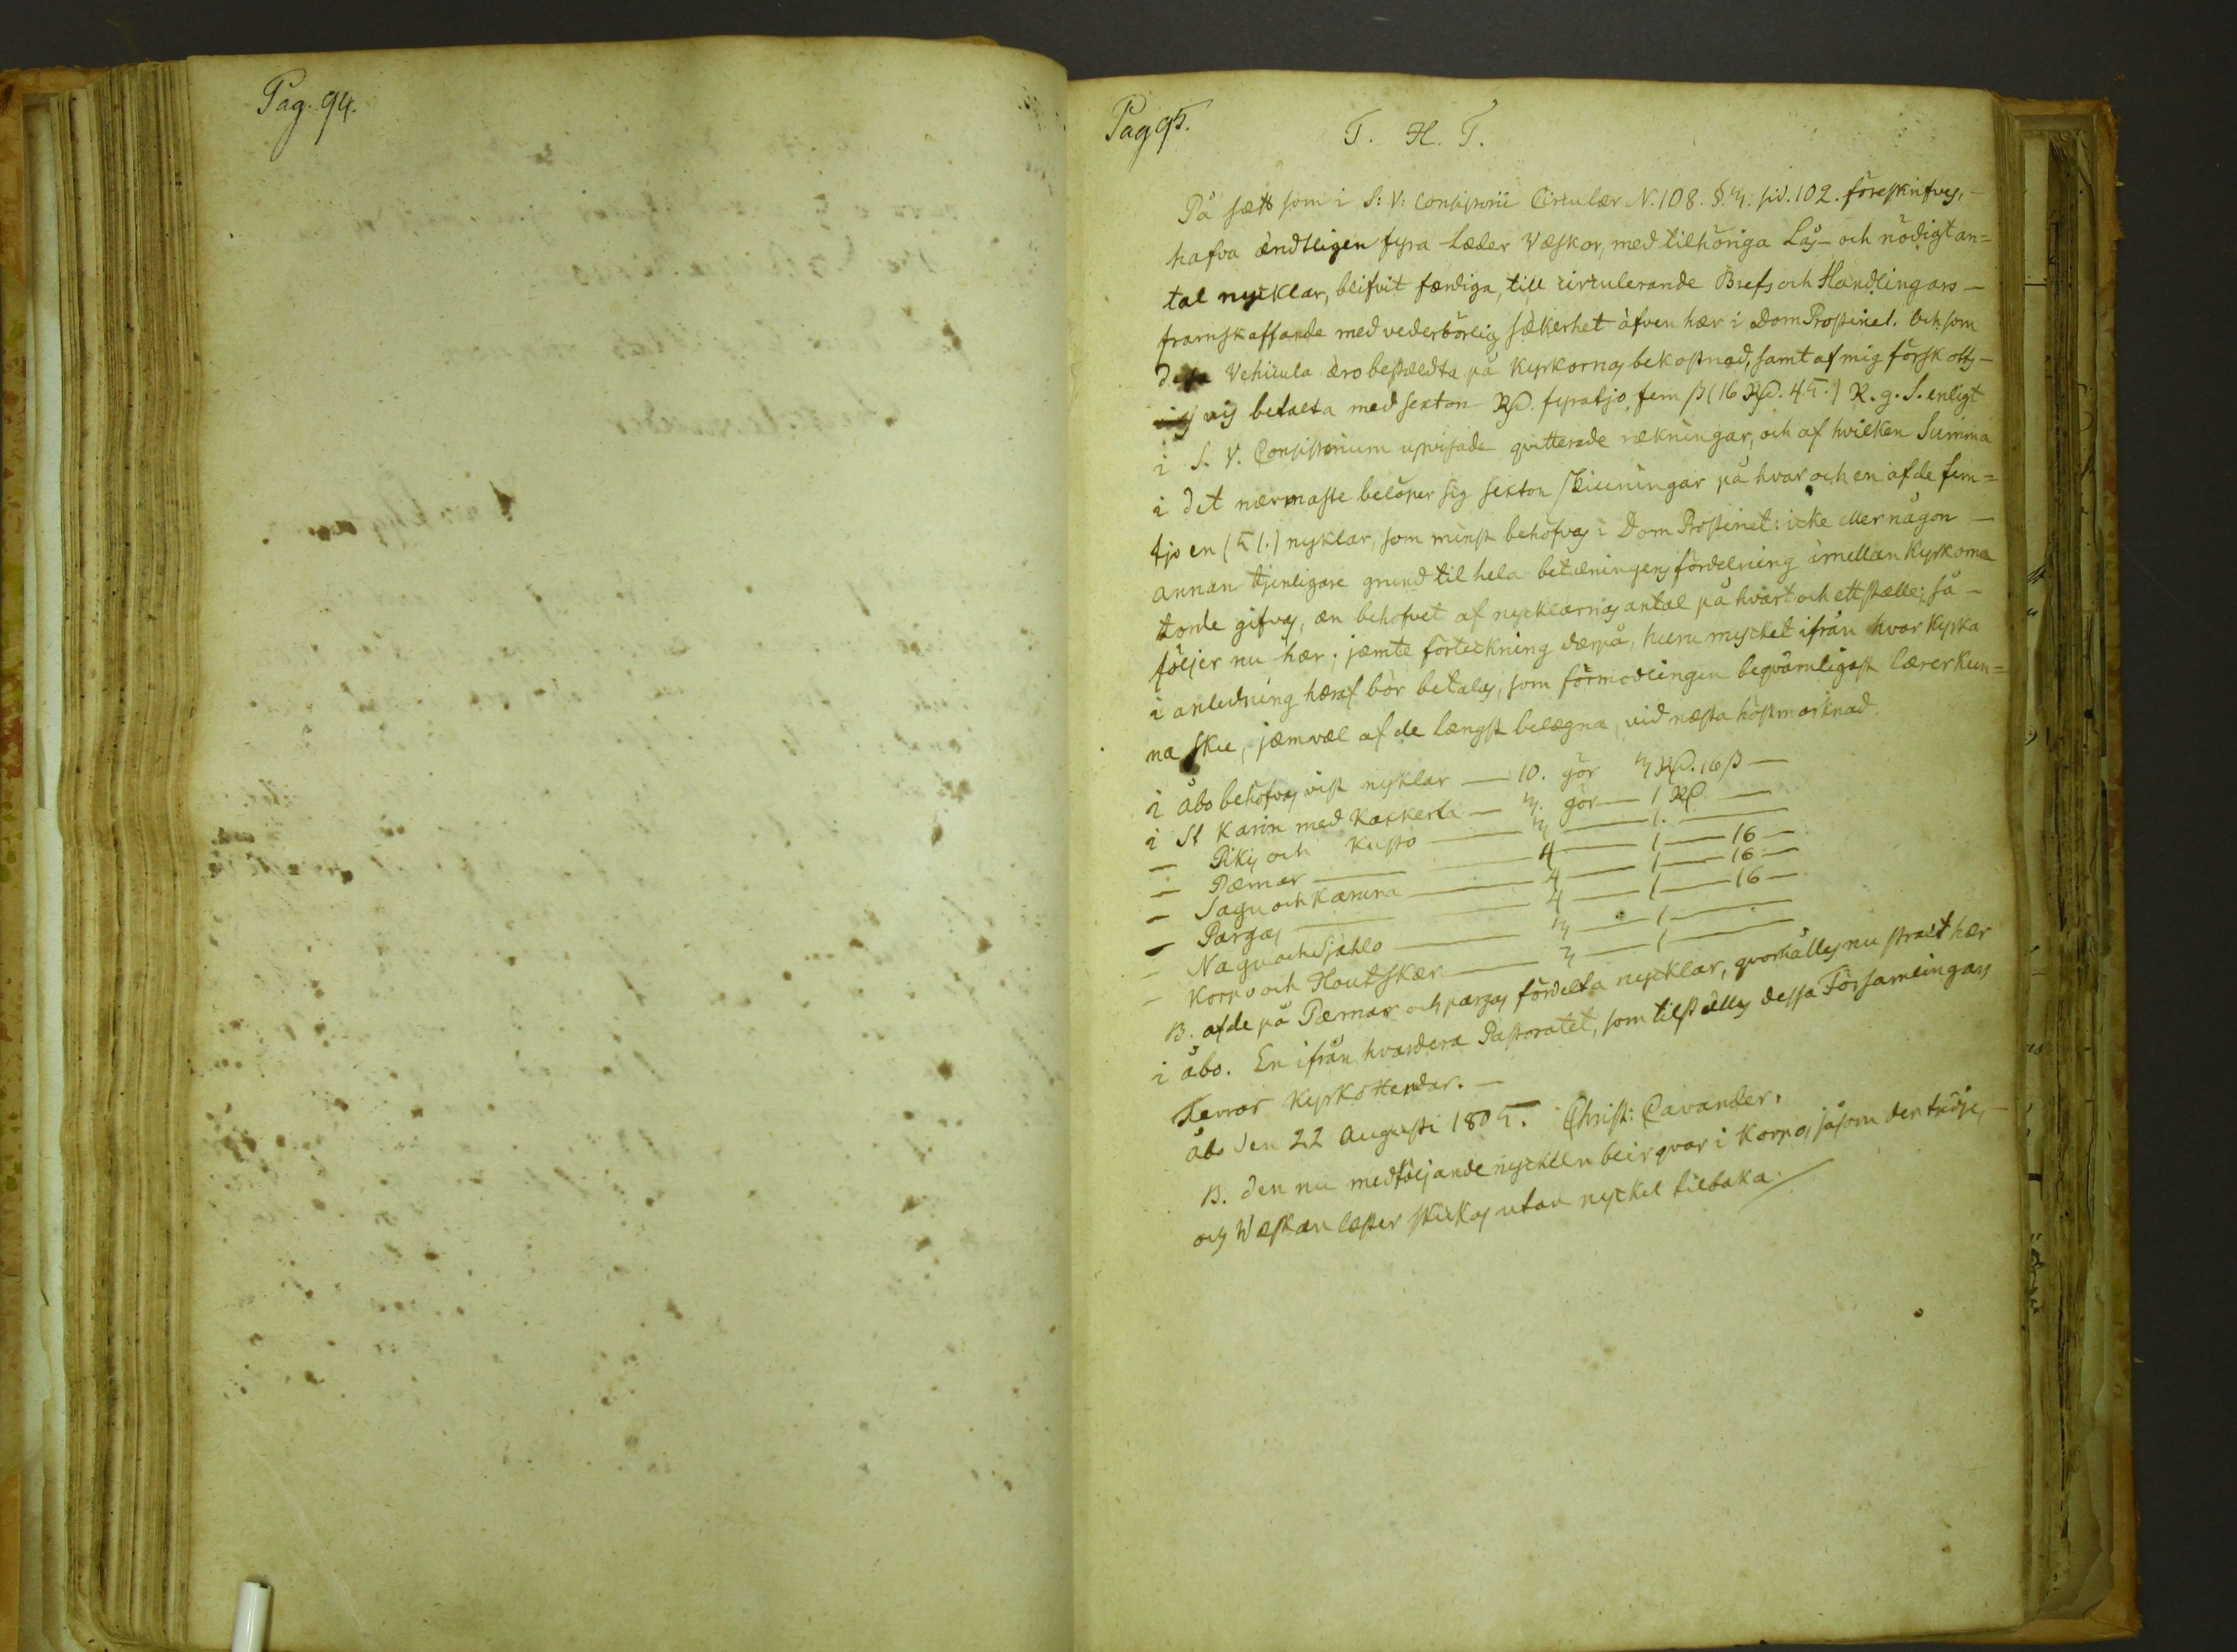 Pag. 94.
Pag 95.
T. H. T.
På sætt som i S: V: Consistorii Circulær N. 108. §. 3. sid. 102. föreskrifves, –
hafva ändtligen fyra Læder Væskor, med tilhöriga Lås – och nödigt an=
tal nycklar, blifvit færdiga, till circulerande Brefs och Handlingars –
framskaffande med vederbörlig säkerhet äfven hær i Dom Prosteriet. Och som
dessa Vehicula æro bestældta på Kyrkornas bekostnad, samt af mig förskotts –
vis betalta med sexton Rd. fyratjo fem ß (16 Rd. 45.) R. g. S. enligt
i S. V. Consistorium upvisade qvitterade rækningar, och af hvilken Summa
i det nærmaste belöper sig sexton skillningar på hvar och en af de fem=
tjo en (51.) nyklar, som minst behöfvas i Dom Prosteriet: icke eller någon –
annan tjenligare grund til hela betalningens fördelning imellan Kyrkorna
torde gifvas, æn behofvet af nycklarnas antal på hvart och ett stælle; så –
följer nu hær, jæmte förteckning dærpå, huru mycket ifrån hvar Kyrka
i anledning hæraf bör betalas, som förmodeligen beqvämligast lærer kun=
na ske, jæmvæl af de længst belægna, vid næsta höstmarknad.
i Åbo behöfvas vist nyklar — 10. gör 3 Rd. 16 ß —
i St Karin med Kakkerta — 3. gör — 1 Rd —
— Pikis och Kusto — 3 — 1. —
— Pæmar — 4 — 1 — 16 —
— Sagu och Karuna — 4 — 1 — 16 —
— Pargas — 4 — 1 — 16 —
— Nagu och Sjæhlo — 3 — 1 —
— Korpo och Houtskær — 3 — 1 —
B. af de på Pæmar och pargas fördelta nycklar, qvarhålles nu strait hær
i Åbo. En ifrån hvardera Pastoratet, som tilställes dessa Församlingars
Herrar Kyrkoherdar. —
Åbo den 22 Augusti 1805. Christ: Cavander.
B. den nu medföljande nyckeln blir qvar i Korpo, såsom den tridje, –
och Wæskan læster skickas utan nyckel tilbaka.